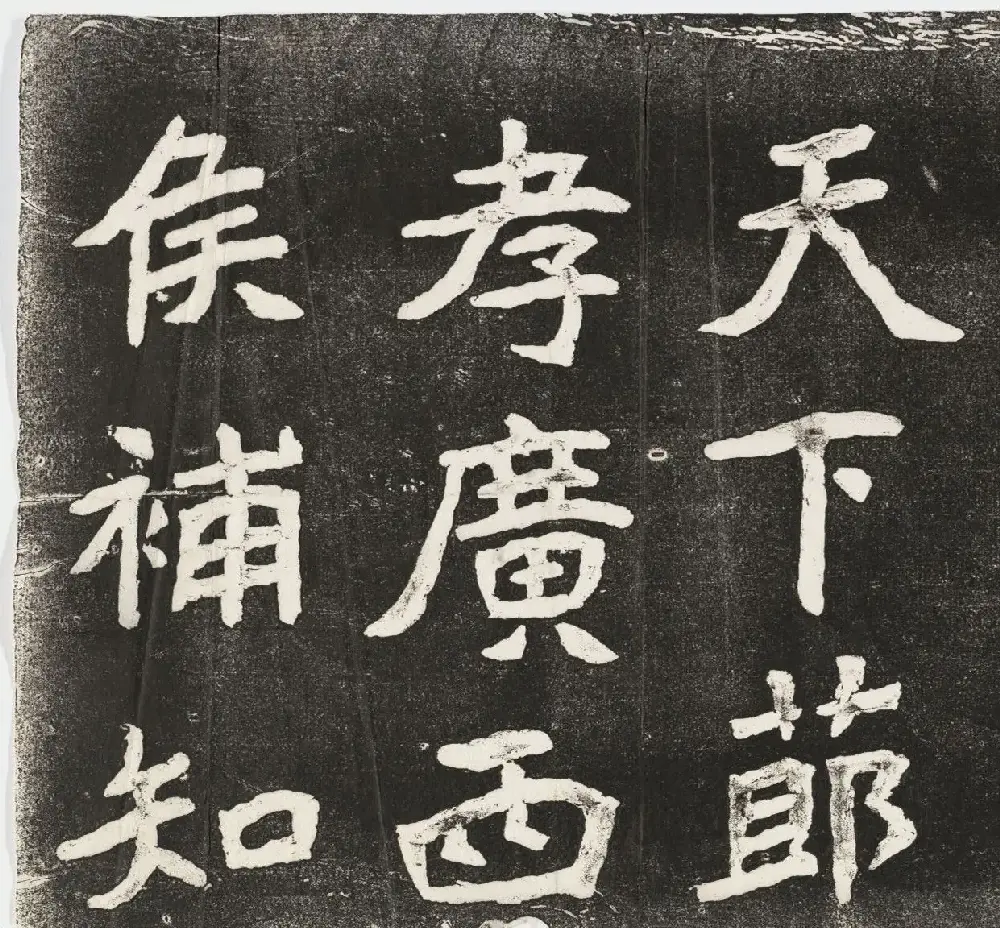 天下節
孝廣西
侯補知